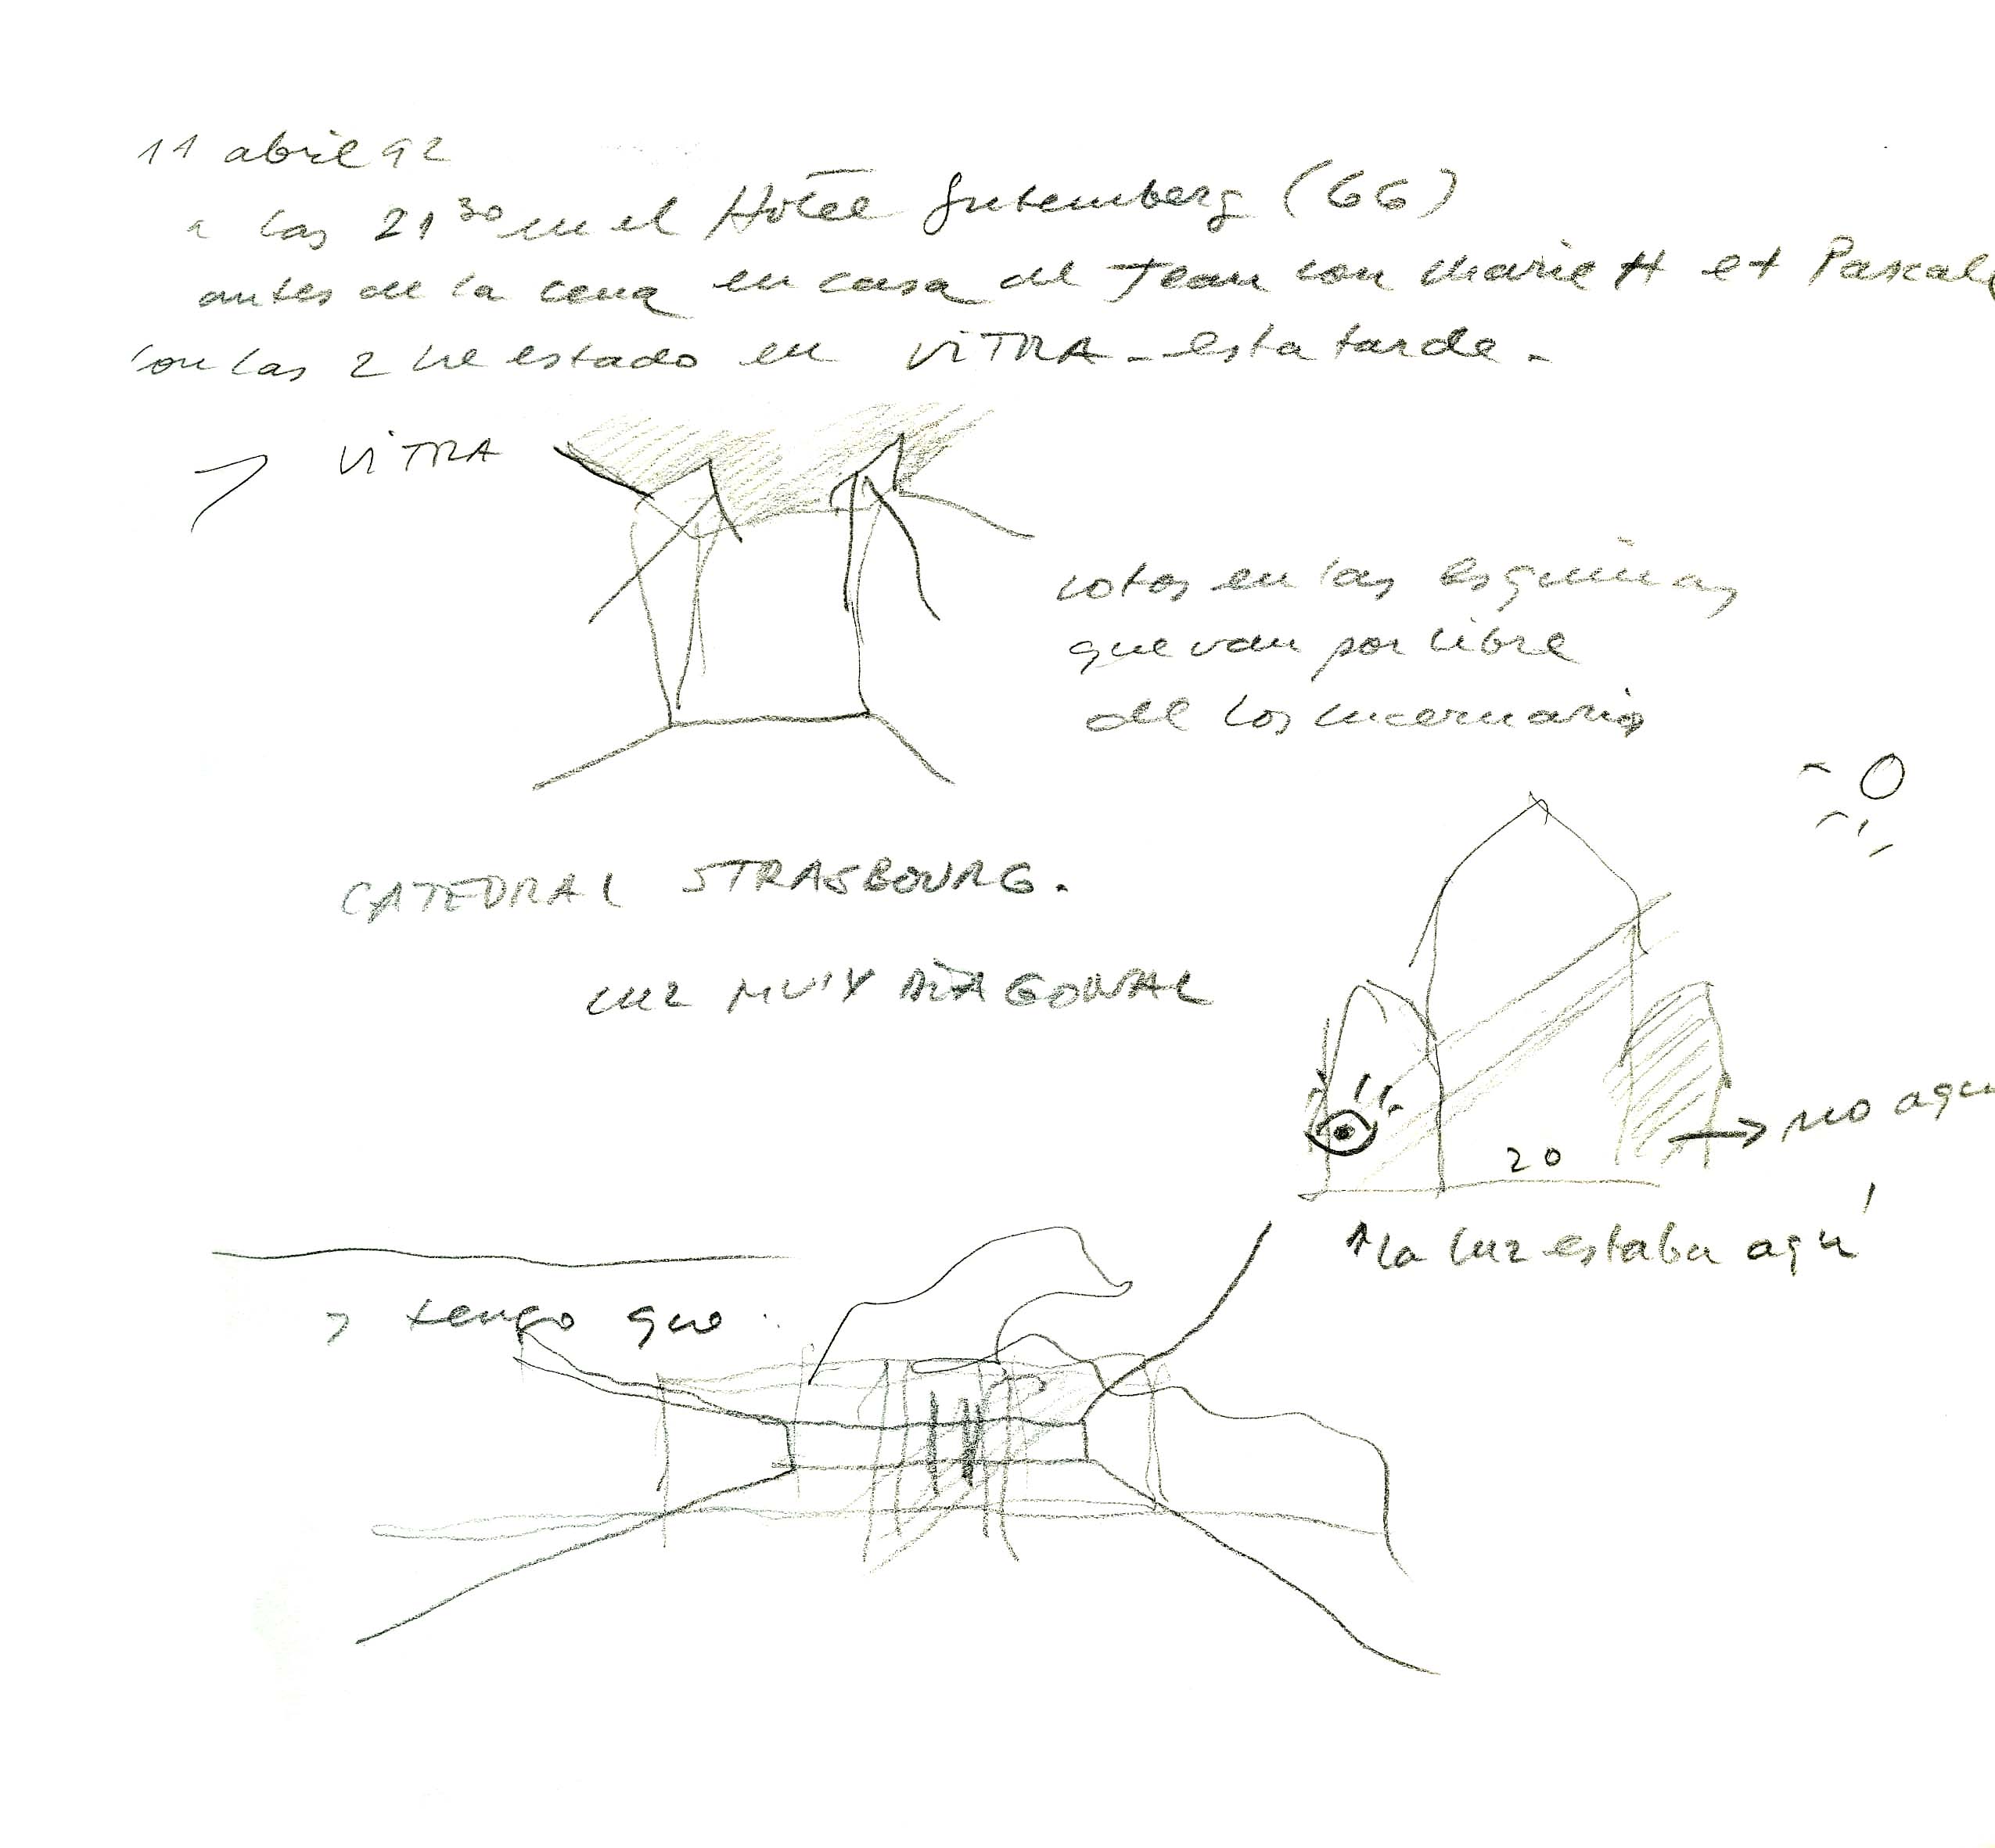 11 abril 92
a las 21³⁰ en el Hôtel Gutemberg (GG)
antes de la cena en casa de Jean con Marie H et Pascale
con las 2 he estado en VITRA - esta tarde -
VITRA
rotos en las esquinas
que van por libre
de los lucernarios
CATEDRAL STRASBOURG.
LUZ MUY DIAGONAL
→ no aqu
20
↑ la luz estaba aquí
tengo que